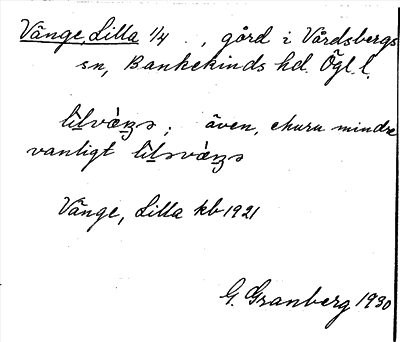 Vänge, Lilla 1/4 ., gård i Vårdsbergs
sn, Bankekinds hd. Ögl. l.
även, churu mindre
vanligt
Vänge, Lilla kb 1921
G. Granberg 1930